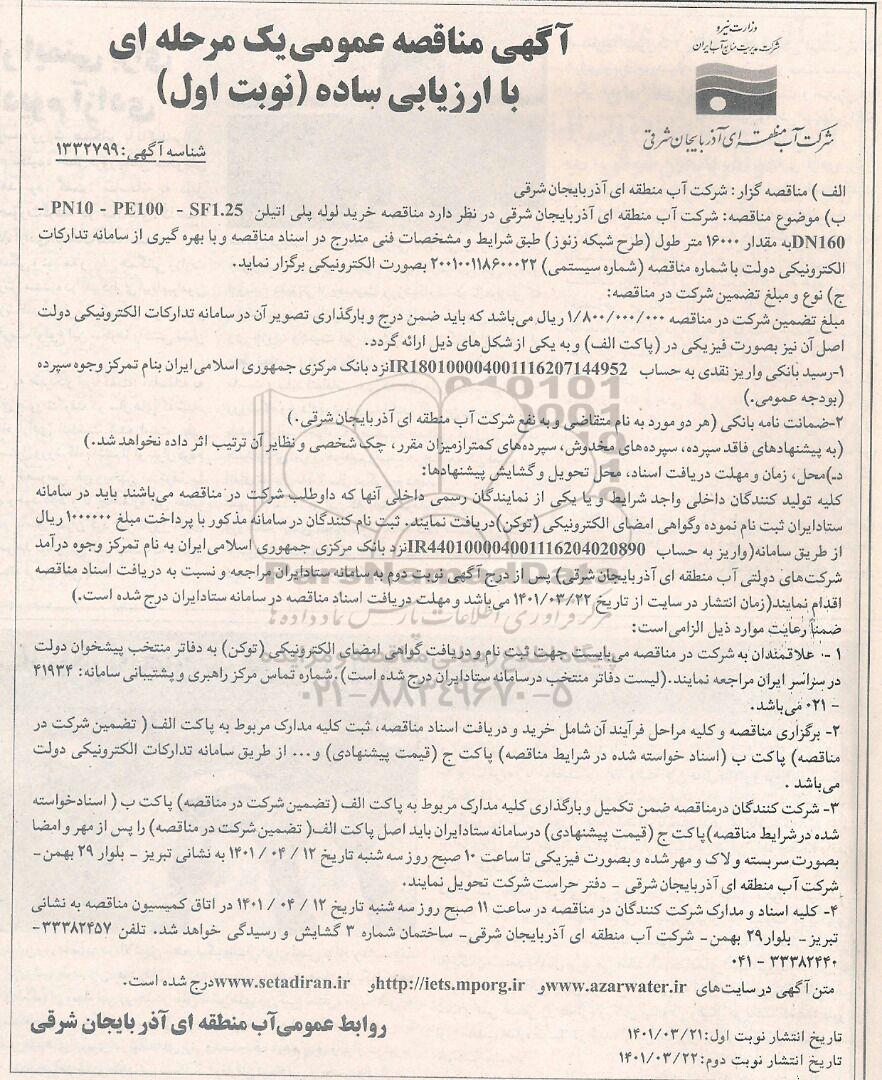 وزارت نیرو
شرکت مدیریت منابع آب ایران
آگهی مناقصه عمومی یک مرحله ای
با ارزیابی ساده (نوبت اول)
شرکت آب منطقه ای آذربایجان شرقی
شناسه آگهی: ۱۳۳۲۷۹۹
الف ) مناقصه گزار: شرکت آب منطقه ای آذربایجان شرقی
ب) موضوع مناقصه: شرکت آب منطقه ای آذربایجان شرقی در نظر دارد مناقصه خرید لوله پلی اتیلن PN10 - PE100 - SF1.25 -
DN160به مقدار ۱۶۰۰۰ متر طول (طرح شبکه زنوز) طبق شرایط و مشخصات فنی مندرج در اسناد مناقصه و با بهره گیری از سامانه تدارکات
الکترونیکی دولت با شماره مناقصه (شماره سیستمی) ۲۰۰۱۰۰۱۱۸۶۰۰۰۰۲۲ بصورت الکترونیکی برگزار نماید.
ج) نوع و مبلغ تضمین شرکت در مناقصه:
مبلغ تضمین شرکت در مناقصه ۱/۸۰۰/۰۰۰/۰۰۰ ریال می‌باشد که باید ضمن درج و بارگذاری تصویر آن در سامانه تدارکات الکترونیکی دولت
اصل آن نیز بصورت فیزیکی در (پاکت الف) و به یکی از شکل‌های ذیل ارائه گردد.
۱-رسید بانکی واریز نقدی به حساب IR180100004001116207144952نزد بانک مرکزی جمهوری اسلامی ایران بنام تمرکز وجوه سپرده
(بودجه عمومی.)
۲-ضمانت نامه بانکی (هر دو مورد به نام متقاضی و به نفع شرکت آب منطقه ای آذربایجان شرقی.)
(به پیشنهادهای فاقد سپرده، سپرده‌های مخدوش، سپرده‌های کمتر ازمیزان مقرر، چک شخصی و نظایر آن ترتیب اثر داده نخواهد شد.)
د-)محل، زمان و مهلت دریافت اسناد، محل تحویل و گشایش پیشنهادها:
کلیه تولید کنندگان داخلی واجد شرایط و یا یکی از نمایندگان رسمی داخلی آنها که داوطلب شرکت در مناقصه می‌باشند باید در سامانه
ستادایران ثبت نام نموده وگواهی امضای الکترونیکی (توکن)دریافت نمایند. ثبت نام کنندگان در سامانه مذکور با پرداخت مبلغ ۱۰۰۰۰۰۰ ریال
از طریق سامانه(واریز به حساب IR440100004001116204020890نزد بانک مرکزی جمهوری اسلامی ایران به نام تمرکز وجوه درآمد
شرکت‌های دولتی آب منطقه ای آذربایجان شرقی) پس از درج آگهی نوبت دوم به سامانه ستادایران مراجعه و نسبت به دریافت اسناد مناقصه
اقدام نمایند(زمان انتشار در سایت از تاریخ ۱۴۰۱/۰۳/۲۲ می‌باشد و مهلت دریافت اسناد مناقصه در سامانه ستادایران درج شده است.)
ضمناً رعایت موارد ذیل الزامی است:
۱ - علاقمندان به شرکت در مناقصه می‌بایست جهت ثبت نام و دریافت گواهی امضای الکترونیکی (توکن) به دفاتر منتخب پیشخوان دولت
در سراسر ایران مراجعه نمایند.(لیست دفاتر منتخب درسامانه ستادایران درج شده است).شماره تماس مرکز راهبری و پشتیبانی سامانه: ۴۱۹۳۴
- ۰۲۱ می‌باشد.
۲- برگزاری مناقصه و کلیه مراحل فرآیند آن شامل خرید و دریافت اسناد مناقصه، ثبت کلیه مدارک مربوط به پاکت الف ( تضمین شرکت در
مناقصه) پاکت ب (اسناد خواسته شده در شرایط مناقصه) پاکت ج (قیمت پیشنهادی) و... از طریق سامانه تدارکات الکترونیکی دولت
می‌باشد .
۳- شرکت کنندگان درمناقصه ضمن تکمیل و بارگذاری کلیه مدارک مربوط به پاکت الف (تضمین شرکت در مناقصه) پاکت ب ( اسنادخواسته
شده در شرایط مناقصه)پاکت ج (قیمت پیشنهادی) درسامانه ستادایران باید اصل پاکت الف( تضمین شرکت در مناقصه) را پس از مهر و امضا
بصورت سربسته و لاک و مهر شده و بصورت فیزیکی تا ساعت ۱۰ صبح روز سه شنبه تاریخ ۱۲ / ۰۴ / ۱۴۰۱ به نشانی تبریز - بلوار ۲۹ بهمن-
شرکت آب منطقه ای آذربایجان شرقی - دفتر حراست شرکت تحویل نمایند.
۴- کلیه اسناد و مدارک شرکت کنندگان در مناقصه در ساعت ۱۱ صبح روز سه شنبه تاریخ ۱۲ / ۰۴ / ۱۴۰۱ در اتاق کمیسیون مناقصه به نشانی
تبریز - بلوار۲۹ بهمن- شرکت آب منطقه ای آذربایجان شرقی- ساختمان شماره ۳ گشایش و رسیدگی خواهد شد. تلفن ۳۳۳۸۲۴۵۷-
۳۳۳۸۲۴۴۰ - ۰۴۱
متن آگهی در سایت‌های www.azarwater.ir و http://iets.mporg.ir و www.setadiran.irدرج شده است.
روابط عمومی آب منطقه ای آذربایجان شرقی
تاریخ انتشار نوبت اول:۱۴۰۱/۰۳/۲۱
تاریخ انتشار نوبت دوم:۱۴۰۱/۰۳/۲۲
ParsNamadData
مرکز فرآوری اطلاعات پارس نماد داده ها
۰۲۱-۸۸۳۴۹۶۷۰-۵